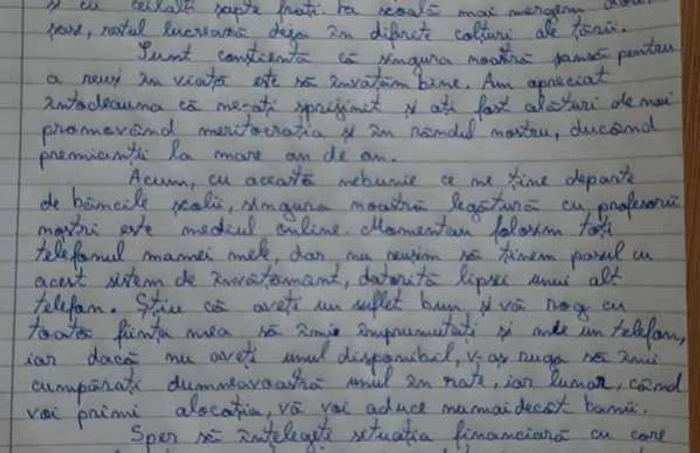 și cu ceilalți șapte frați. La școală mai mergem doar
șase, restul lucrează deja în diferite colțuri ale țării.
Sunt conștientă că singura noastră șansă pentru
a reuși în viață este să învățăm bine. Am apreciat
întodeauna că ne-ați sprijinit și ați fost alături de noi
promovând meritocrația și în rândul nostru, ducând
premianții la mare an de an.
Acum, cu această nebunie ce ne ține departe
de băncile școlii, singura noastră legătură cu profesorii
noștri este mediul online. Momentan folosim toți
telefonul mamei mele, dar nu reușim să ținem pasul cu
acest sistem de învățământ, datorită lipsei unui alt
telefon. Știu că aveți un suflet bun și vă rog cu
toată ființa mea să îmi împrumutați și mie un telefon,
iar dacă nu aveți unul disponibil, v-aș ruga să îmi
cumpărați dumneavoastră unul în rate, iar lunar, când
voi primi alocația, vă voi aduce numaidecât banii.
Sper să înțelegeți situația financiară cu care